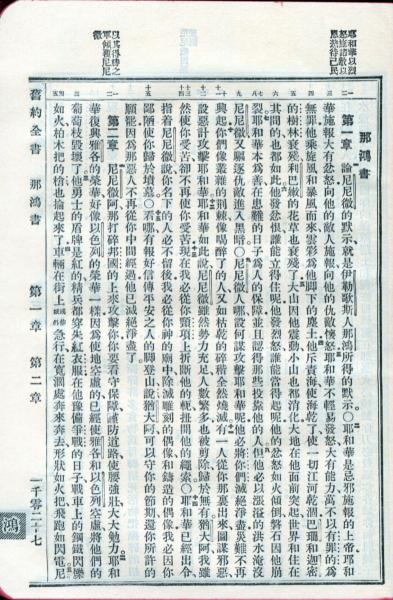 耶和華以烈
怒施諸敵以
恩慈待己民
以其得勝之
軍傾覆尼尼
微
那鴻書
第一章 論尼尼微的默示、就是伊勒歌斯人那鴻所得的默示○耶和華是忌邪施報的上帝耶和
華施報大有忿怒向他的敵人施報向他的仇敵懷怒耶和華不輕易發怒大有能力萬不以有罪的爲
無罪他乘旋風和暴風而來雲彩爲他脚下的塵土他斥責海使海乾了使一切江河乾涸巴珊和迦密
的樹林衰殘利巴嫩的花草也衰殘了大山因他震動小山也都消化大地在他面前突起世界和住在
其間的也都如此他發忿恨誰能立得住呢他發烈怒誰能當得起呢他的忿怒如火傾倒磐石因他崩
裂耶和華本爲善在患難的日子爲人的保障並且認得那些投靠他的人但他必以漲溢的洪水淹沒
尼尼微又驅逐仇敵進入黑暗○尼尼微人哪設何謀攻擊耶和華呢他必將你們滅絕淨盡災難不再
興起你們像叢雜的荊棘像喝醉了的人又如枯乾的碎稭全然燒滅有一人從你那裏出來圖謀邪惡
設惡計攻擊耶和華耶和華如此說尼尼微雖然勢力充足人數繁多也被剪除歸於無有猶大阿我雖
然使你受苦却不再使你受苦現在我必從你頸項上折斷他的軛扭開他的繩索○耶和華已經出令
指着尼尼微說你名下的人必不留後我必從你神的廟中除滅雕刻的偶像和鑄造的偶像我必因你
鄙陋使你歸於墳墓○看哪有報好信傳平安之人的脚登山說猶大阿可以守你的節期還你所許的
願罷因爲那惡人不再從你中間經過他已滅絕淨盡了
第二章 尼尼微阿那打碎邦國的上來攻擊你你要看守保障謹防道路使腰強壯大大勉力耶和
華復興雅各的榮華好像以色列的榮華一樣因爲使地空虛的已經使雅各和以色列空虛將他們的
葡萄枝毀壞了他勇士的盾牌是紅的精兵都穿朱紅衣服在他豫備爭戰的日子戰車上的鋼鐵閃爍
如火柏木把的槍也掄起來了車輛在街上急行在寬濶處奔來奔去形狀如火把飛跑如閃電尼
舊約全書 那鴻書 第一章 第二章 一千零二十七
鴻